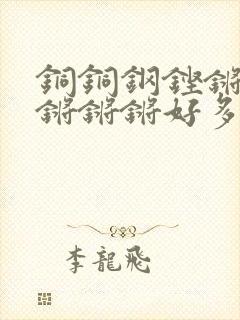 銅銅鋼鏗鏘
鏘鏘鏘好多
李龍飛